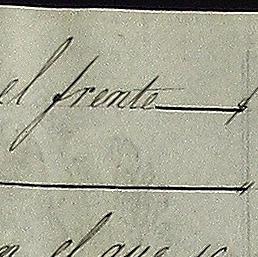 el frente
el que se